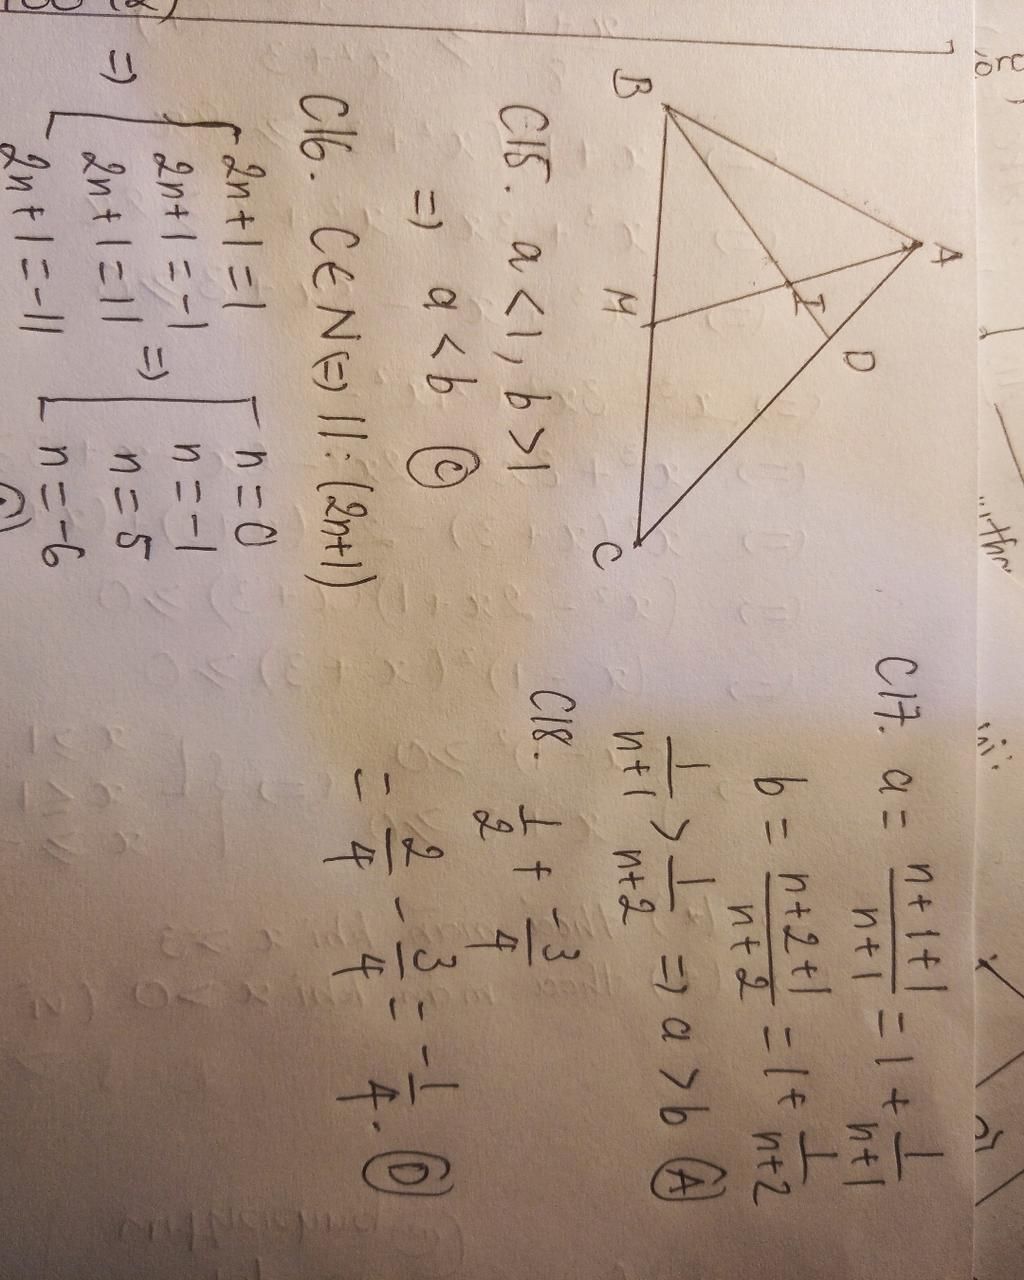 A
B
I
D
M
C
C15. a < 1, b > 1
=> a < b (C)
C16. C ∈ N <=> 11 : (2n+1)
=> [ 2n+1 = 1
2n+1 = -1
2n+1 = 11
2n+1 = -11
=> [ n = 0
n = -1
n = 5
n = -6
C17. a = (n+1+1)/(n+1) = 1 + 1/(n+1)
b = (n+2+1)/(n+2) = 1 + 1/(n+2)
1/(n+1) > 1/(n+2) => a > b (A)
C18. 1/2 + -3/4
= 2/4 - 3/4 = -1/4. (D)